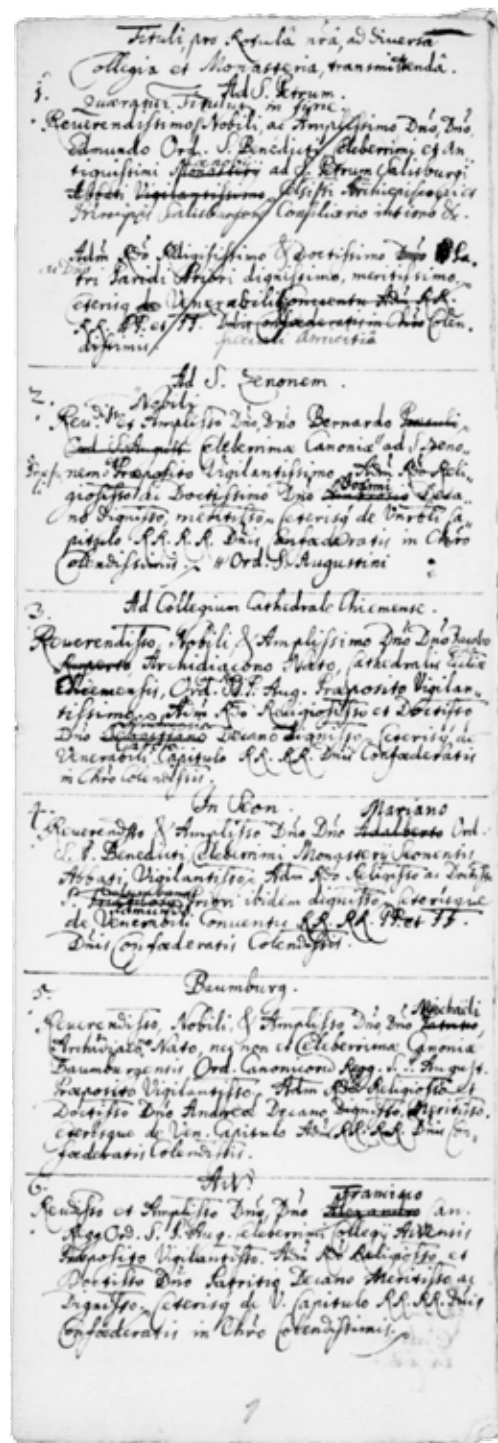 Tituli, pro Rotulâ nrâ, ad diversa
Collegia et Monasteria, transmittendâ.
1. Ad S. Petrum.
Quæratur Titulus in fine.
Reverendissimo, Nobili, ac Amplissimo Dno, Dno
Edmundo Ord. S. Benedicti, Celeberrimi et An
tiquissimi Monasterij ad S. Petrum Salisburgi
Abbati Vigilantissimo, Celsissi Archiepiscopi et
Principis Salisburgens Consiliario intimo &.
Adm Rdo Religiosissimo & Doctissimo Dno Pa
tri Paridi Priori dignissimo, meritissimo,
Ceterisq de Venerabili Conventu Adm RR.
RR. PP. et FF. Dnis Confœderatis in Chro Colen
dissimis.
2. Ad S. Zenonem.
Nobili
Revd et Amplisso Dno, Dno Bernardo
Celeberrimæ Canoniæ ad S. Zeno
nem Præposito Vigilantissimo, Adm Rdo Reli
giosisso ac Doctissimo Dno Deca
no Dignisso, meritisso, Ceterisq de Vnrbli Ca
pitulo R.R. R.R. Dnis Confœderatis in Chro
Colendissimis. # Ord. S. Augustini
3. Ad Collegium Cathedrale Chiemense.
Reverendisso, Nobili & Amplissimo Dno Dno Jacobo
Ruperto Archidiacono Nato, Cathedralis Eccliæ
Chiemensis, Ord. S. P. Aug. Præposito Vigilan
tissimo, Adm Rdo Religiosisso et Doctisso
Dno Sebastiano Decano dignisso, Ceterisq de
Venerabili Capitulo RR. RR. Dnis Confœderatis
in Chro colendissis.
4. In Seon. Mariano
Reverendsso & Amplisso Dno Dno Adalberto Ord.
S. P. Benedicti, Celeberrimi Monasterij Seonensis
Abbati, Vigilantisso, Adm Rdo Religisso ac Doctisso
P. Priori ibidem dignisso, Ceterisque
de Venerabili Conventu RR. RR. PP. et FF.
Dnis Confœderatis Colendissis.
5. Baumburg.
Michaeli
Reverendisso, Nobili, & Amplisso, Dno Dno Patritio,
Archidiaco Nato, nec non et Celeberrimæ Canoniæ
Baumburgensis Ord. Canonicoru Regg. S. P. August.
Præposito Vigilantisso, Adm Rdo Religiosso et
Doctisso Dno Andreæ Decano Dignisso, Meritisso,
Ceterisque de Ven. Capitulo Adm RR. RR. Dnis Con
fœderatis Colendissis.
6. AW.
Francisco
Revdisso et Amplisso Dno, Dno Alexandro Can.
Regg Ord. S. P. Aug. Celeberrimi Collegij AWensis
Præposito Vigilantisso, Adm Rdo Religiosso et
Doctisso Dno Patritio Decano Meritisso ac
Dignisso, Ceterisq de V. Capitulo RR. RR. Dnis
Confœderatis in Chro Colendissimis.